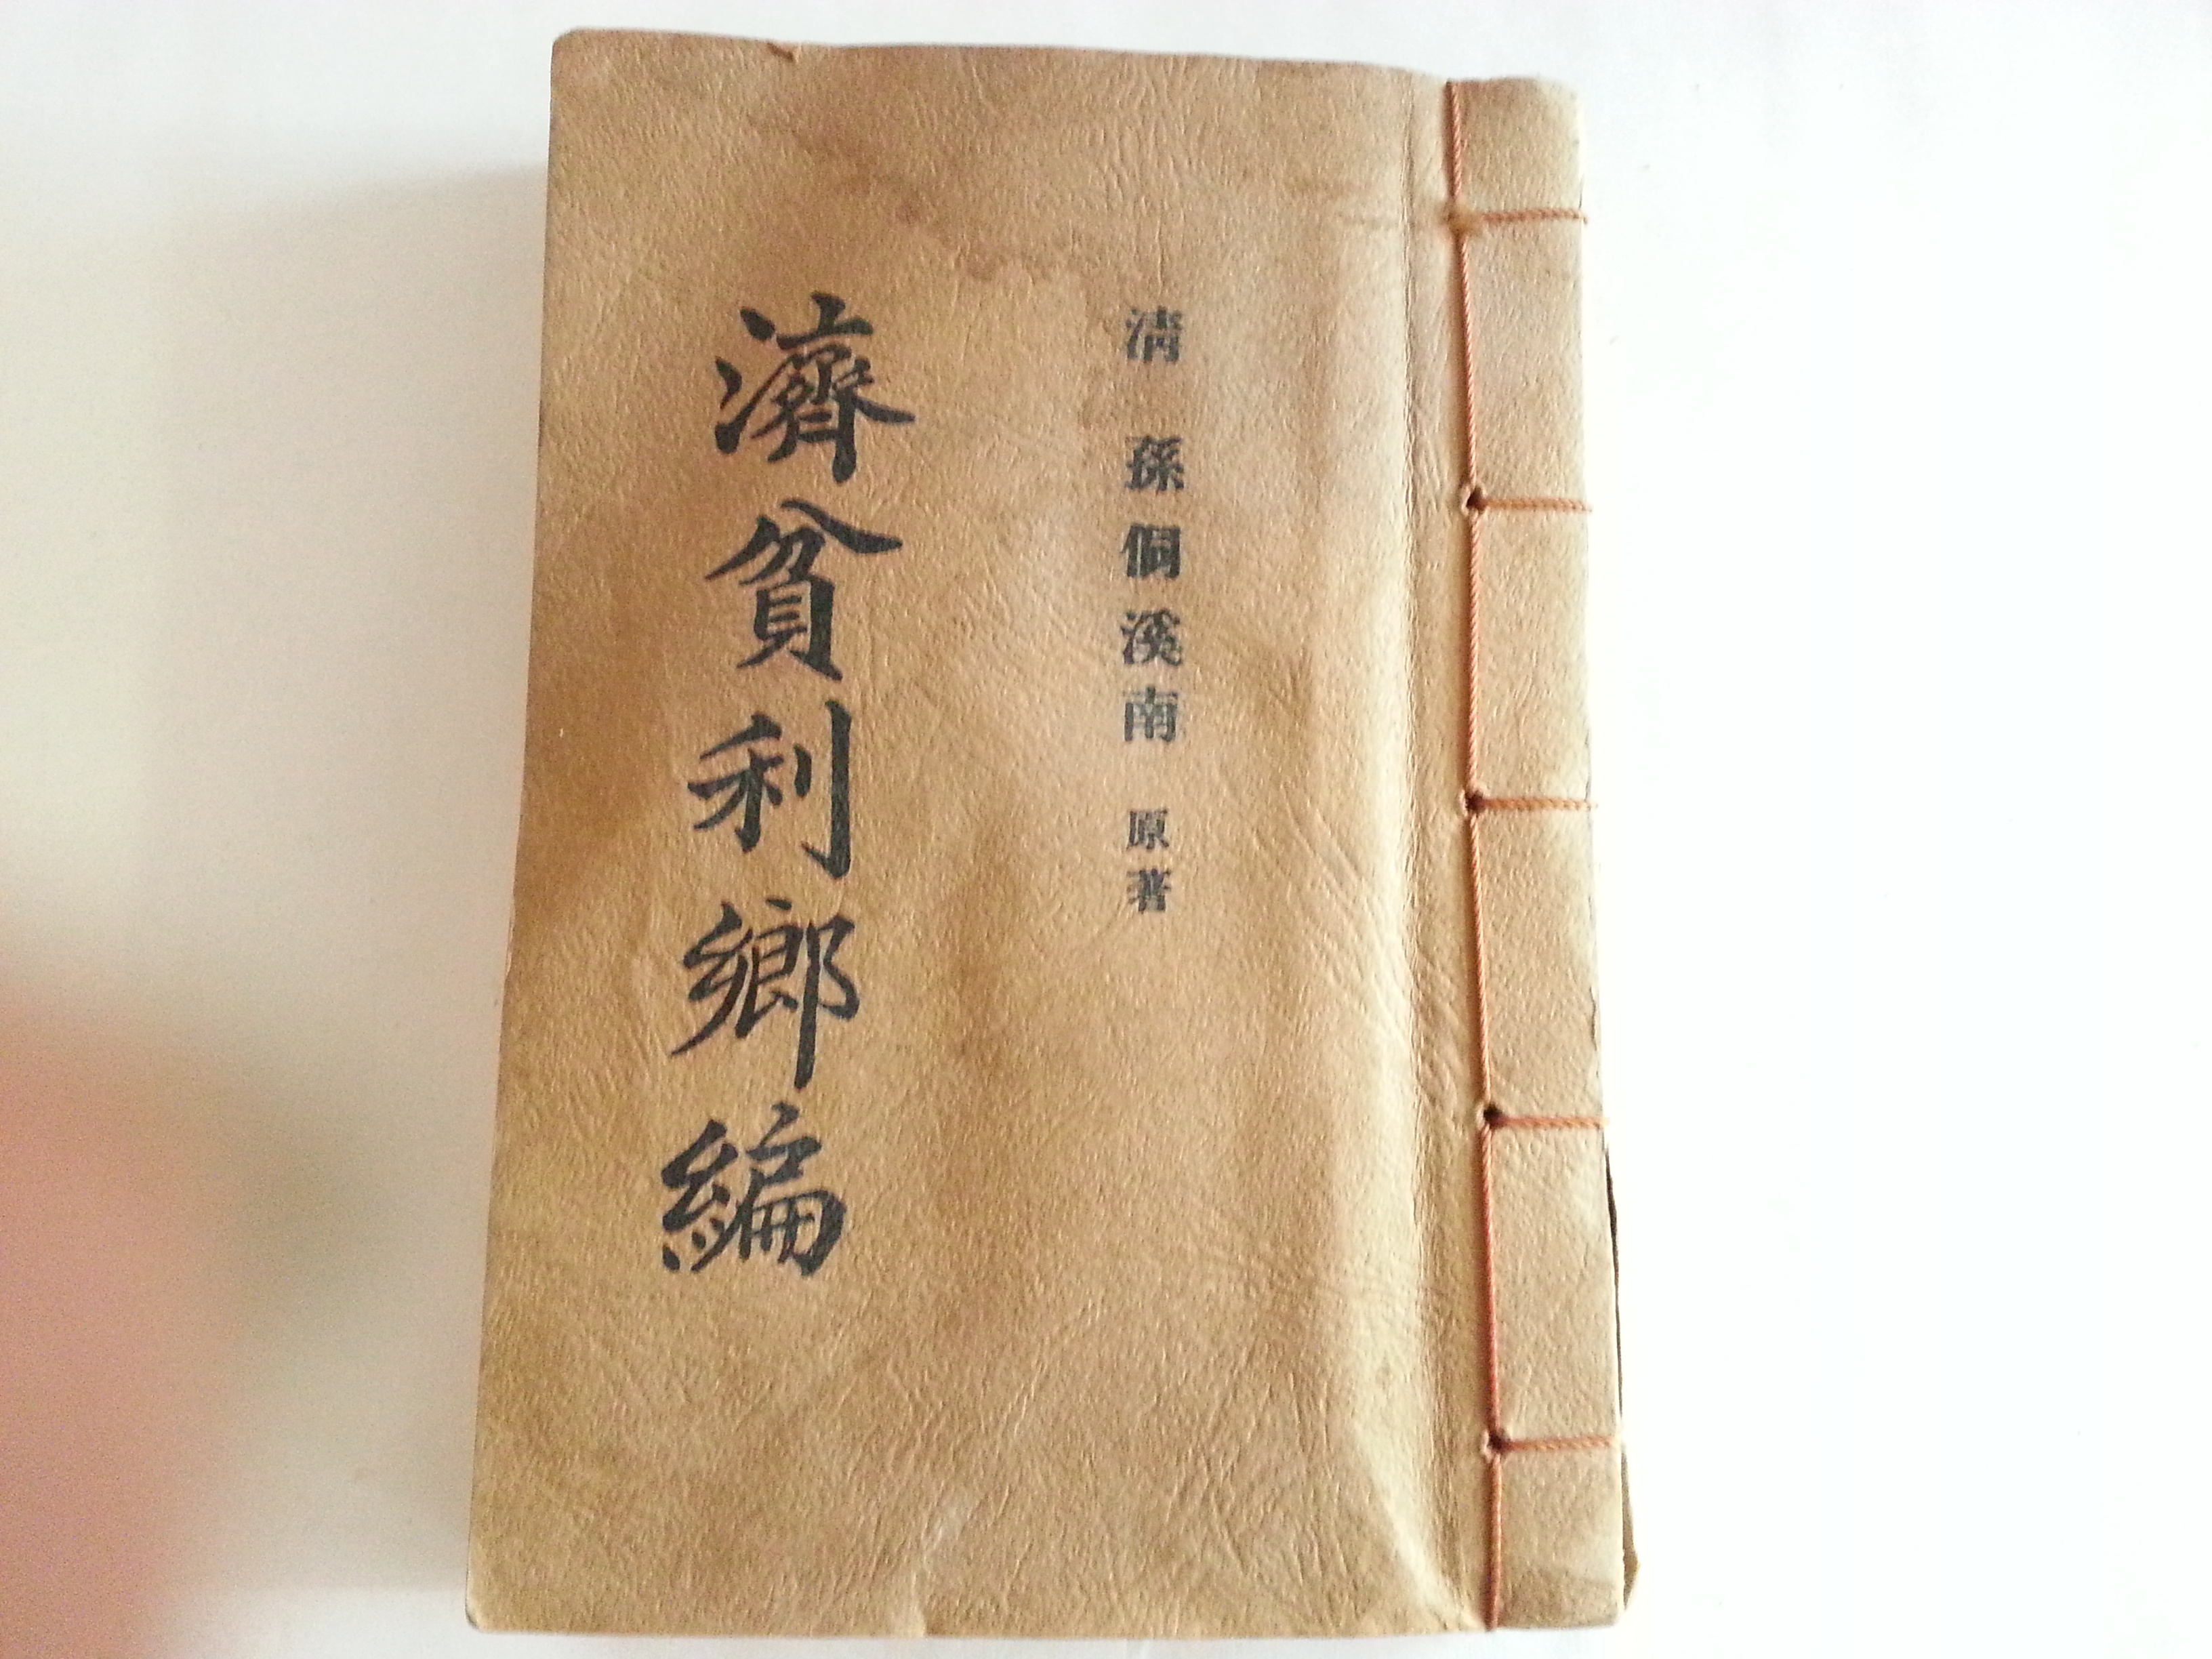 清 孫侗溪南 原著
濟貧利鄉編